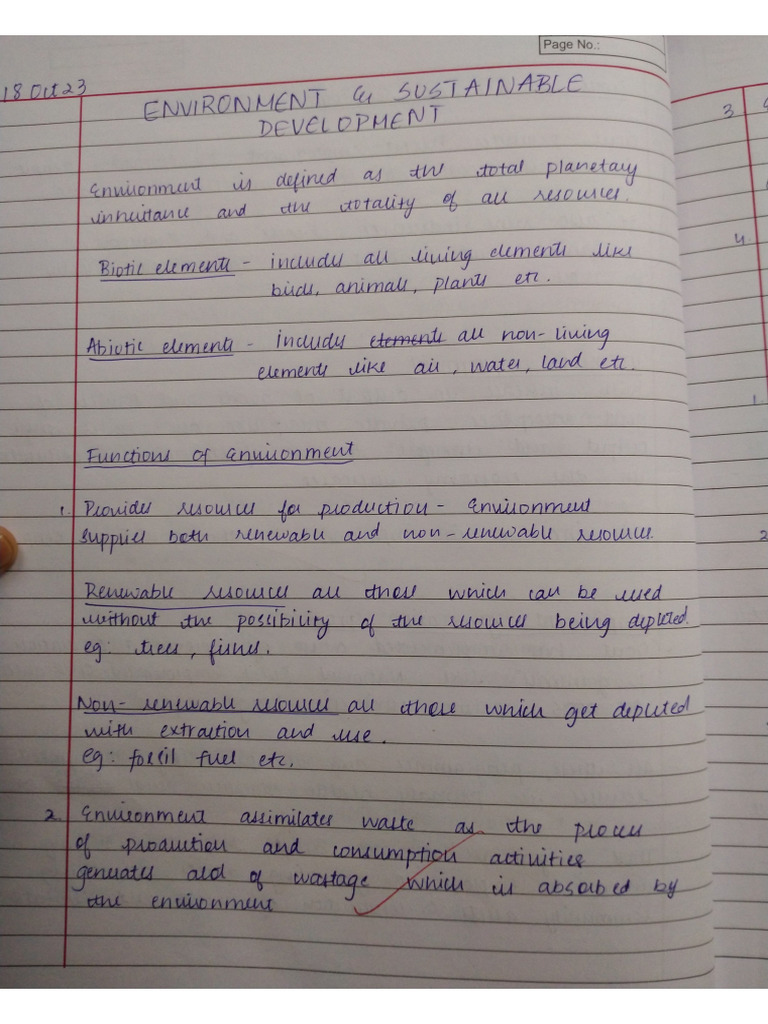 Page No.:
18 Oct 23
ENVIRONMENT & SUSTAINABLE
DEVELOPMENT
Environment is defined as the total planetary
inheritance and the totality of all resources.
Biotic elements - includes all living elements like
birds, animals, plants etc.
Abiotic elements - includes elements all non-living
elements like air, water, land etc.
Functions of Environment
1. Provides resources for production - Environment
supplies both renewable and non-renewable resources.
Renewable resources are those which can be used
without the possibility of the resources being depleted.
eg: trees, fishes.
Non-renewable resources are those which get depleted
with extraction and use.
eg: fossil fuel etc.
2. Environment assimilates waste as the process
of production and consumption activities
generates alot of wastage which is absorbed by
the environment
3
4
1.
2